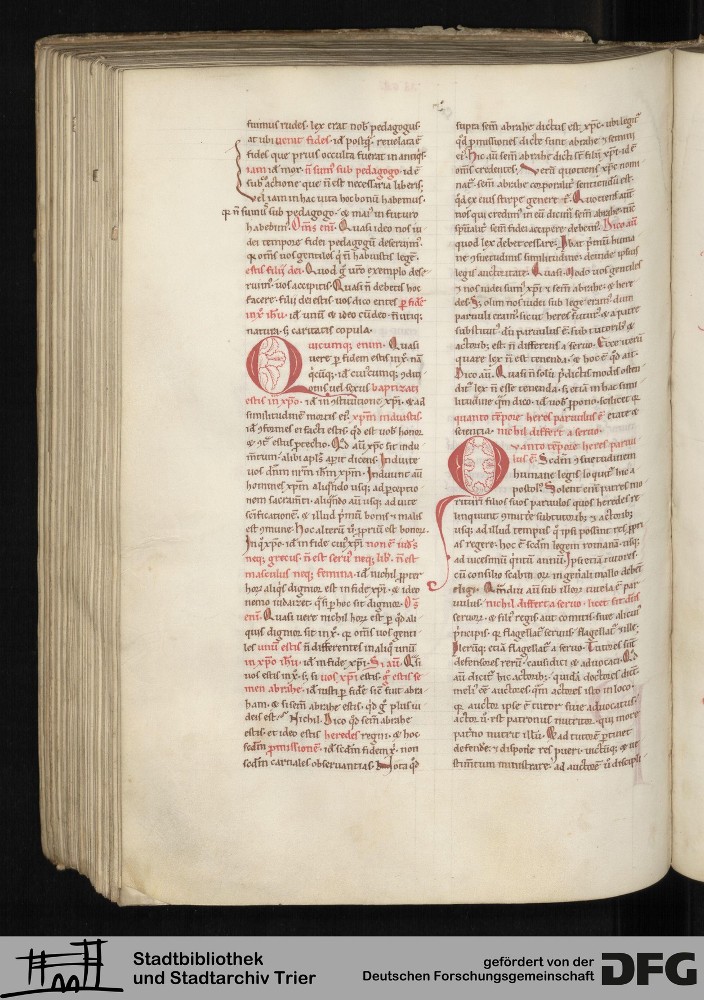 fuimus rudes· lex erat nob pedagogus
at ubi uenit fides· id postq reuelata e
fides que prius occulta fuerat in
iam id mox n sum sub pedagogo· id e
sub actione que n est necessaria liberis·
uel iam in hac uita hoc bonu habemus·
q n sumus sub pedagogo· & in futuro
habebim· Oms eni· Quasi ideo nos iu
dei tempore fidei pedagogu deserim
q oms uos gentiles q n habuistis lege·
estis filii dei· Quod g uro exemplo dese
ruim· uos accipitis· Quasi n debetis hoc
facere· filii dei estis· uos dico entes p fide
in x ihu· id unu & ideo
natura· s; caritatis copula·
Quicumq; enim· Quasi
uere p fidem estis in x· na
id cuicumq;
onis uel sexus baptizati
estis in xpo· id in xpi· & ad
similitudine mortis ei· xpm induistis·
id facti estis· qd est uob honor
& estis Qd au xpc sit indu
mtum· alibi apls apit dicens· Induite
uos dnm nrm ihm xpm· Induunt au
homines xpm aliqndo usq; ad pceptio
nem sacramti· aliqndo au usq; ad uite
scificatione· & illud pmu bonis & malis
est 9mune· Hoc alteru u ppriu est bonor·
In q xpo· id in fide cui xpi non e iudeus
neq; grecus· n est seru neq; lib· n est
masculus neq; femina· id nichil ppter
hor aliqs dignior est in fide xpi· & ideo
nemo iudaizet· q p hoc sit dignior· Oms
eni· Quasi uere nichil hor est p qd ali
quis dignior sit in x· q oms uos genti
les unu estis n differentes in aliq unu
in xpo ihu· id in fide xpi· Si au· Qsi
uos estis in x· s; si uos xpi estis· g estis se
men abrahe· id iusti p fide sic fuit abra
ham· & si sem abrahe estis· qd g plus iu
deis est? Nichil· Dico qd sem abrahe
estis· et ideo estis heredes regni· & hoc
scdm pmissione· id scdm fidem x· non
scdm carnales obseruantias· Nota qd
supra sem abrahe dictus est xpc· ubi legit
qd pmissiones dicte sunt abrahe & semini
ei· Hic au sem abrahe dicti st filii xpi· id e
oms credentes· Veru quotiens xpc nomi
nat· sem abrahe corporalit sentiendu est·
q ex eius stirpe genere e· Quotiens au
nos qui credim in eu dicim sem abrahe· tuc
spualit sem fidei accipere debem· Dico au
quod lex debet cessare· Ibat pmu huma
ne 9suetudinis similitudine· deinde ipsius
legis auctoritate· Quasi· Modo uos gentiles
& nos iudei sum xpi & sem abrahe· & here
des· S; olim nos iudei sub lege eram· dum
paruuli eram· sicut heres futur· & a patre
substitut du paruulus e· sub tutorib &
actorib· est n differens a seruo· Ecce uera
quare lex n est tenenda· & hoc e qd ait·
Dico au· Quasi n soli pdictis modis osten
dit lex n esse tenenda· s; etia in hac simi
litudine qm dico· id uob ppono· scilicet q
quanto tepore heres paruulus e etate &
scientia· nichil differt a seruo·
Quanto tepore heres paruu
lus e· Scdm 9suetudinem
humane legis loquit hic a
postol· Solent eni patres mo
rituri filios suos paruulos quos heredes re
linquunt 9mitte sub tutorib & actorib·
usq; ad illud tempus q ipsi possint res ppri
as regere· hoc e scdm legem romana· usq;
ad uicesimu qntu annu· Ipsi etia tutores·
cu consilio
elige· Qmdiu au sub illor tutela e par
uulus· nichil differt a seruo· licet sit dns
seruor· & fili regis aut comitis· siue alicui
principis· q flagellat seruus· flagellat & ille·
Pleruq; etia flagellat a seruo· Tutores sut
defensores reru· causidici & aduocati· Qd
au dicit hic actorib· quida doctores dicut
meli ee auctores· qm actores isto in loco·
q auctor ipse e tutor siue aduocatus·
actor u est patronus nutritor· qui more
patrio nutrit illu· Ad tutore ptinet
defende· & dispone res pueri· uictuq; & ue
stimtum ministrare· ad auctore u discipli
Stadtbibliothek
und Stadtarchiv Trier
gefördert von der
Deutschen Forschungsgemeinschaft
DFG